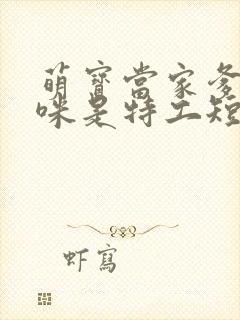 萌寶當家爹
咪是特工短
虾寫